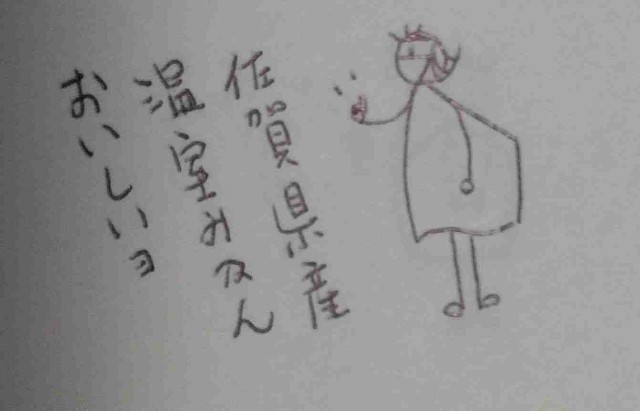 佐賀県産
温室みかん
おいしいヨ